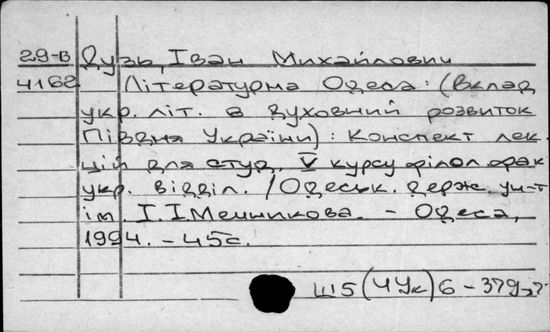 29-В Дузь, Іван Михайлович
4162 Літературна Одеса: (Вклад
укр. літ. в духовний розвиток
Півдня України): Конспект лек-
цій для студ. V курсу філол. фак.
укр. відділ. / Одеськ. держ. ун-т
ім. І.І.Мечникова. - Одеса,
1994. - 45с.
Ш5(4Ук)6-379